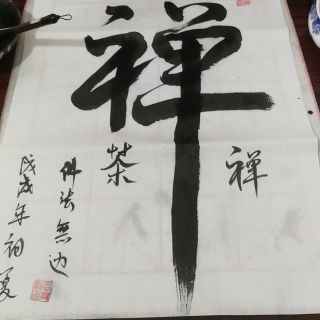 禅
禅
茶
佛法無边
戊戌年初夏